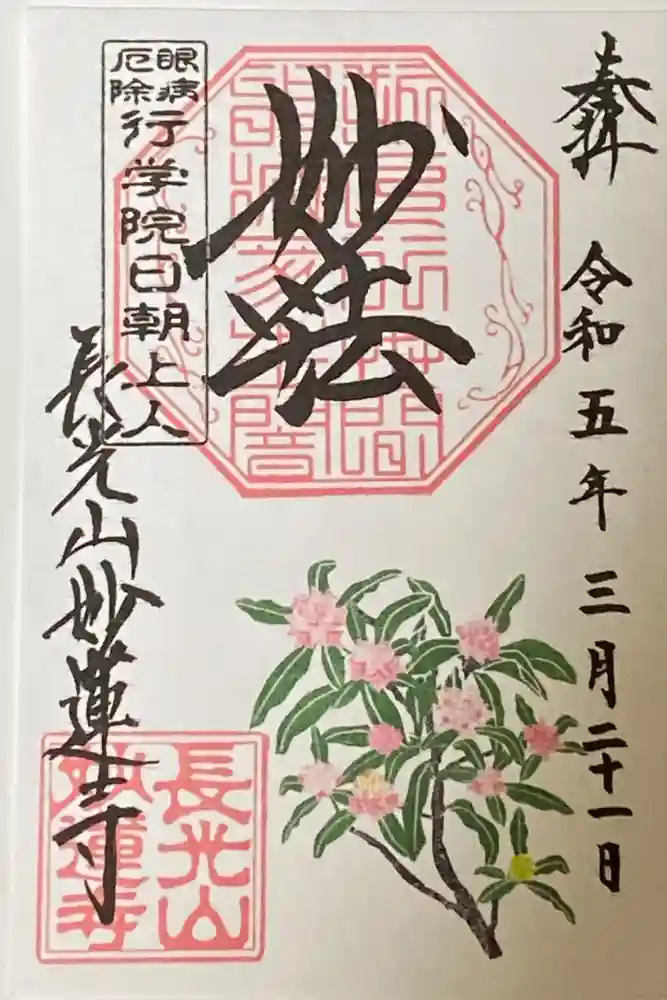 奉拝
令和五年 三月二十一日
妙法
眼病
厄除
行学院日朝上人
長光山妙蓮寺
長光山
妙蓮寺